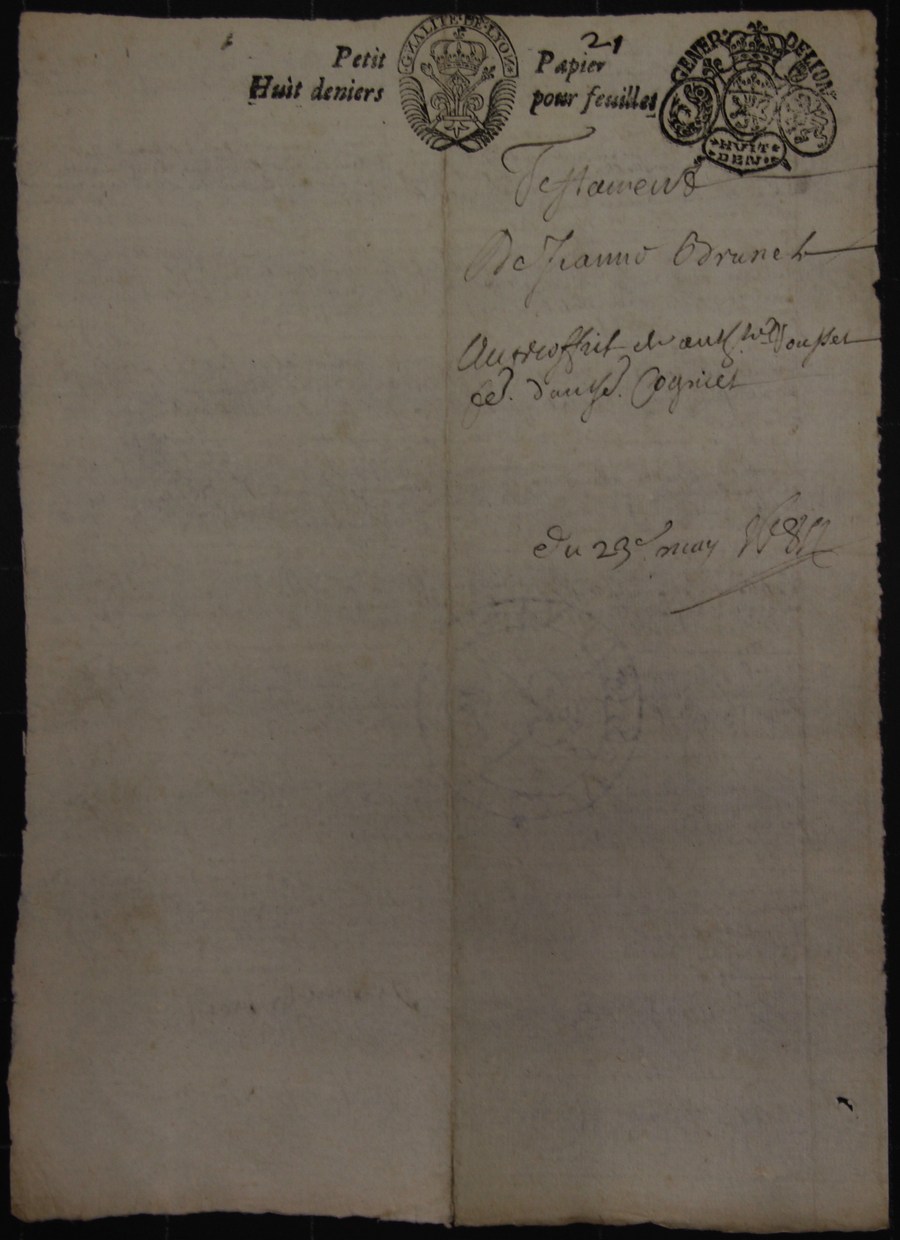 GZALITE·DE·LYON
21
Petit Papier
Huit deniers pour feuillet
GENER· DE LION
HUIT
DEN
Testament
De Jeanne Brunet
Au proffit de
Cognict
du 23e may